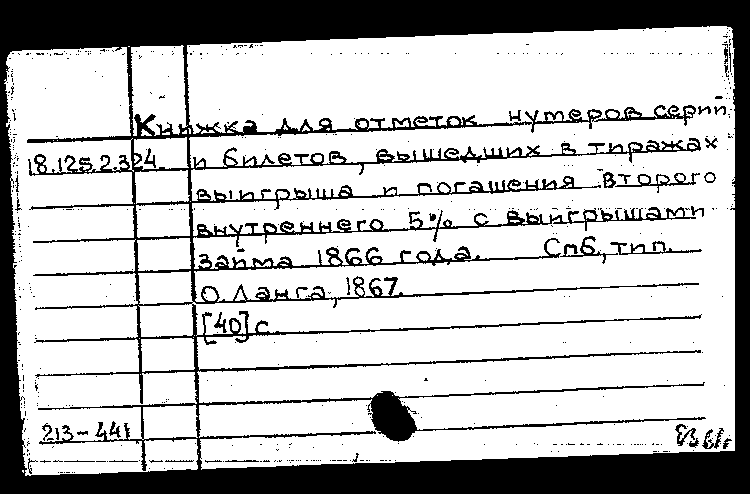 Книжка для отметок нумеров серий
18.125.2.324. и билетов, вышедших в тиражах
выигрыша и погашения второго
внутреннего 5% с выигрышами
займа 1866 года. Спб, тип.
О. Ланга, 1867.
[40] с.
213-441